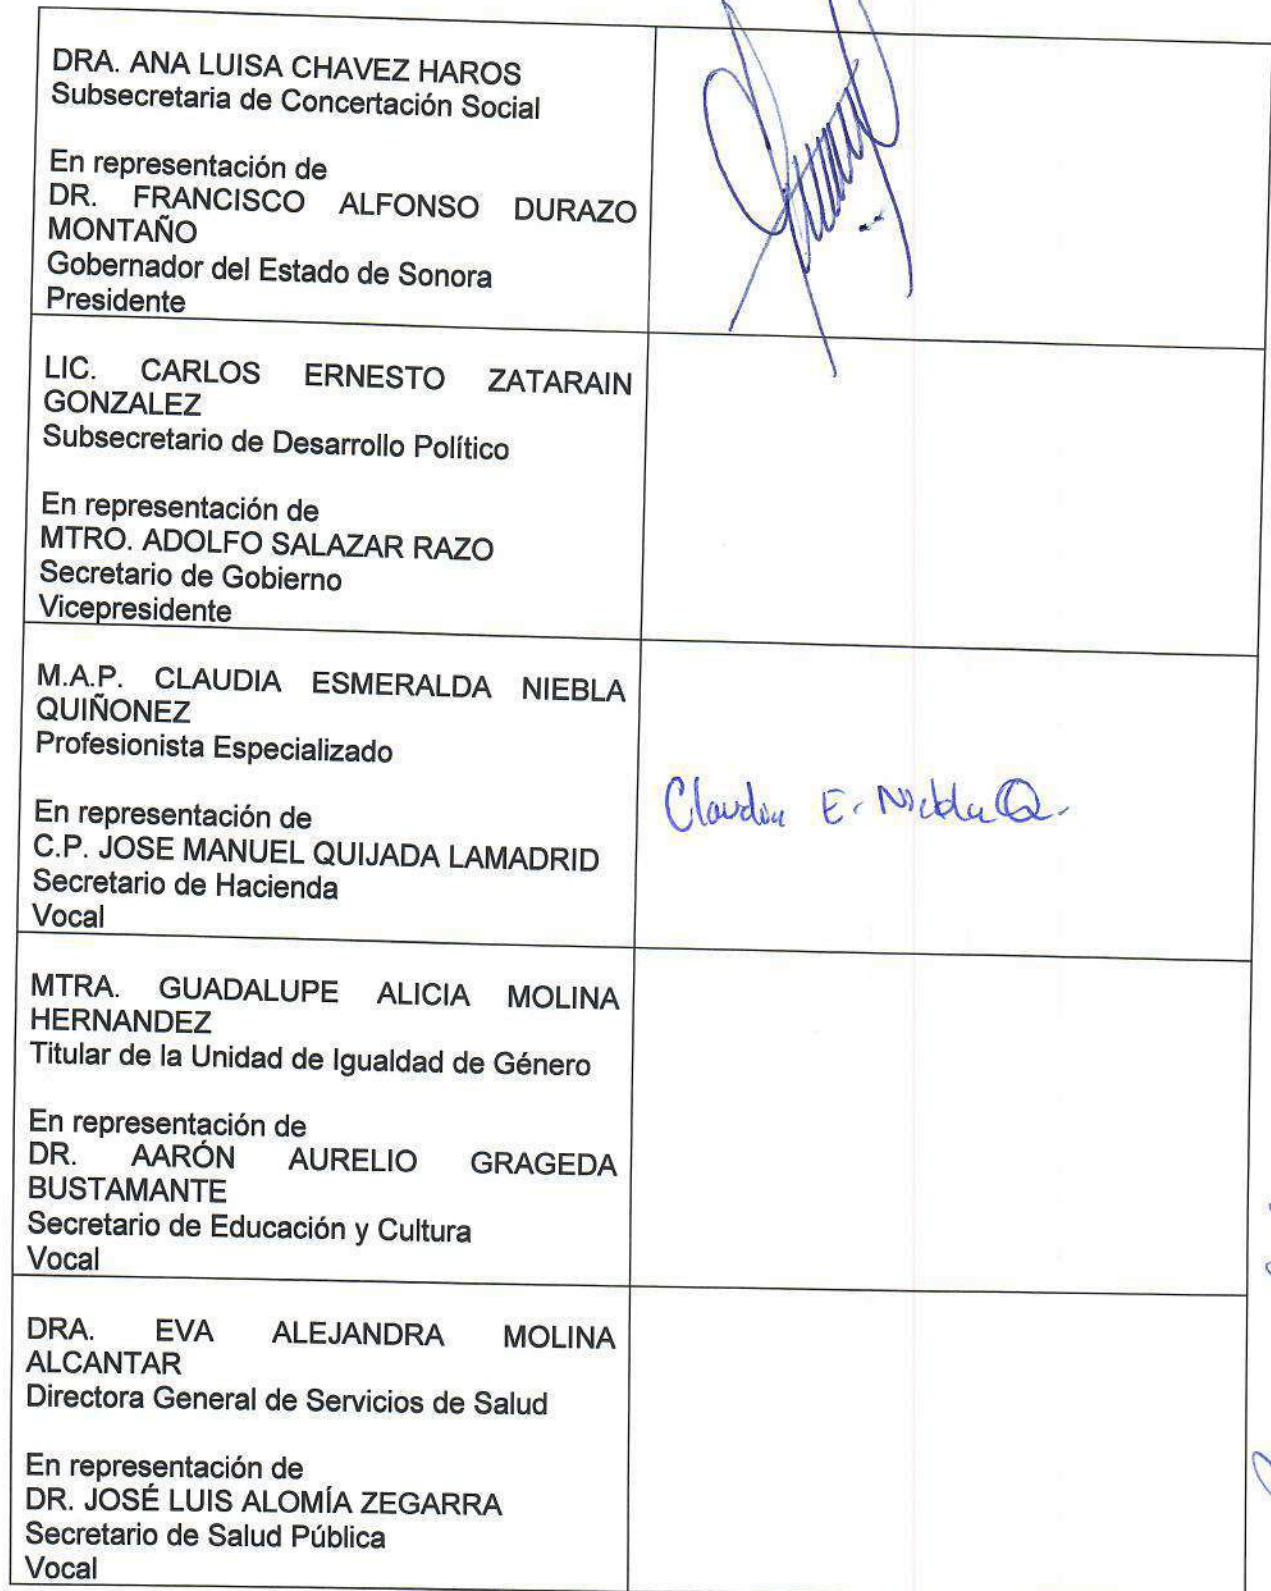 DRA. ANA LUISA CHAVEZ HAROS
Subsecretaria de Concertación Social
En representación de
DR. FRANCISCO ALFONSO DURAZO
MONTAÑO
Gobernador del Estado de Sonora
Presidente
LIC. CARLOS ERNESTO ZATARAIN
GONZALEZ
Subsecretario de Desarrollo Político
En representación de
MTRO. ADOLFO SALAZAR RAZO
Secretario de Gobierno
Vicepresidente
M.A.P. CLAUDIA ESMERALDA NIEBLA
QUIÑONEZ
Profesionista Especializado
En representación de
C.P. JOSE MANUEL QUIJADA LAMADRID
Secretario de Hacienda
Vocal
Claudia E. Niebla Q.
MTRA. GUADALUPE ALICIA MOLINA
HERNANDEZ
Titular de la Unidad de Igualdad de Género
En representación de
DR. AARÓN AURELIO GRAGEDA
BUSTAMANTE
Secretario de Educación y Cultura
Vocal
DRA. EVA ALEJANDRA MOLINA
ALCANTAR
Directora General de Servicios de Salud
En representación de
DR. JOSÉ LUIS ALOMÍA ZEGARRA
Secretario de Salud Pública
Vocal